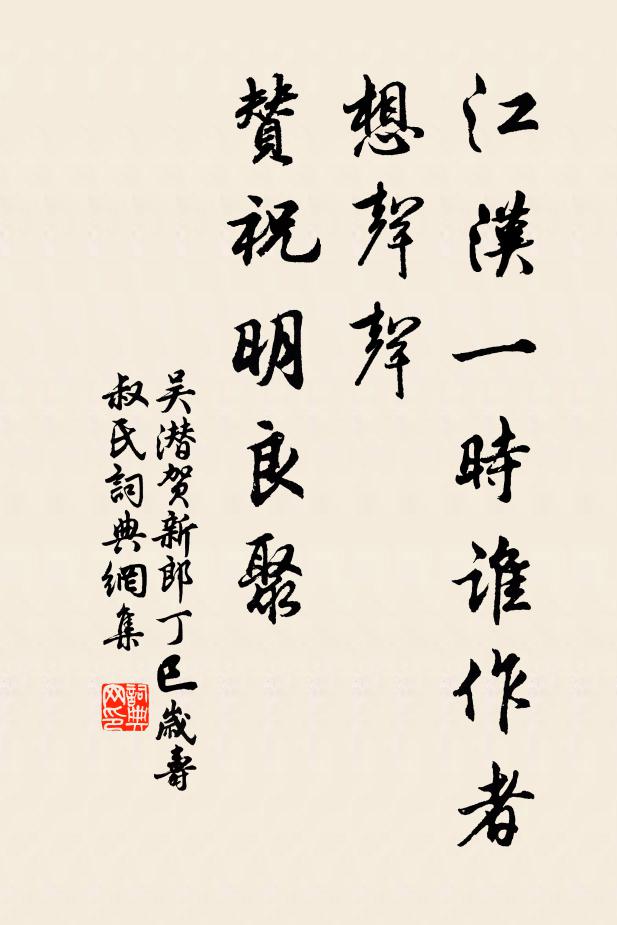 江漢一時誰作者
想聲聲
贊祝明良聚
吴潜贺新郎丁巳歲壽
叔氏詞典網集
詞典网印